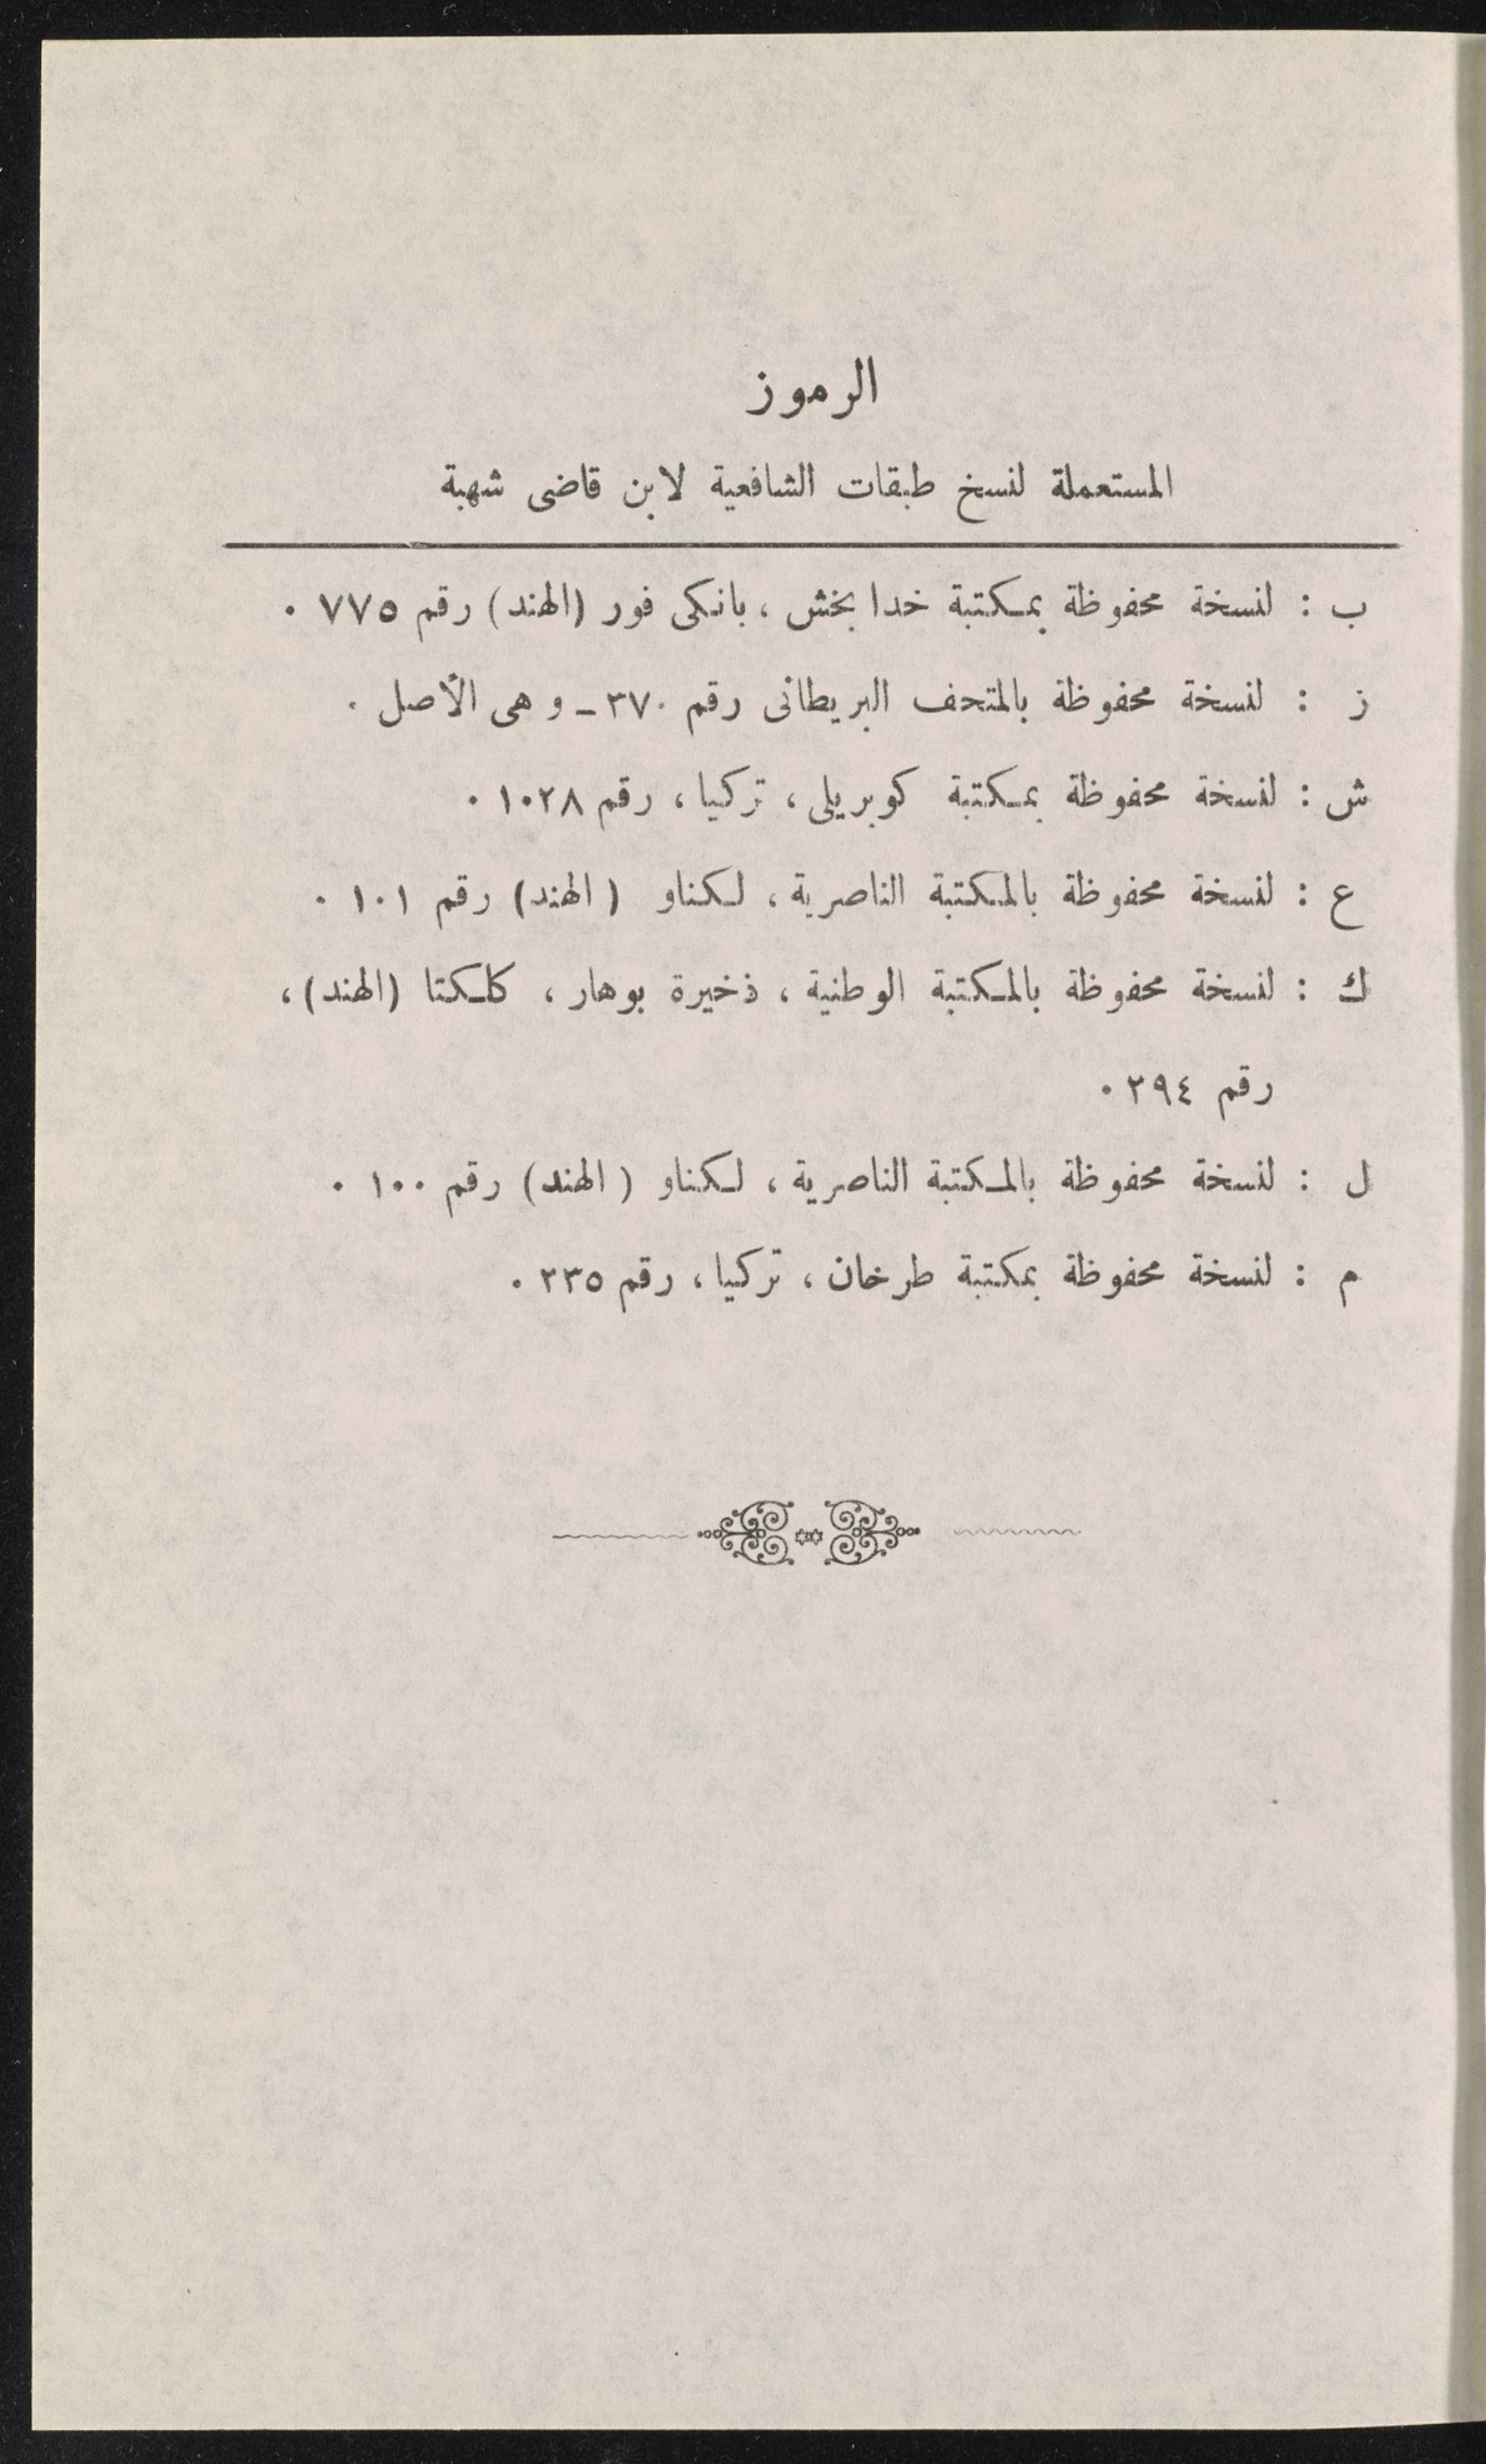 الرموز
المستعملة لنسخ طبقات الشافعية لابن قاضى شهبة
ب : لنسخة محفوظة بمكتبة خدا بخش ، بانكى فور (الهند) رقم ٧٧٥ .
ز : لنسخة محفوظة بالمتحف البريطانى رقم ٣٧٠ ـ و هى الأصل .
ش : لنسخة محفوظة بمكتبة كوبريلى ، تركيا ، رقم ١٠٢٨ .
ع : لنسخة محفوظة بالمكتبة الناصرية ، لكناو ( الهند) رقم ١٠١ .
ك : لنسخة محفوظة بالمكتبة الوطنية ، ذخيرة بوهار ، كلكتا (الهند) ،
رقم ٢٩٤ .
ل : لنسخة محفوظة بالمكتبة الناصرية ، لكناو ( الهند) رقم ١٠٠ .
م : لنسخة محفوظة بمكتبة طرخان ، تركيا ، رقم ٢٣٥ .